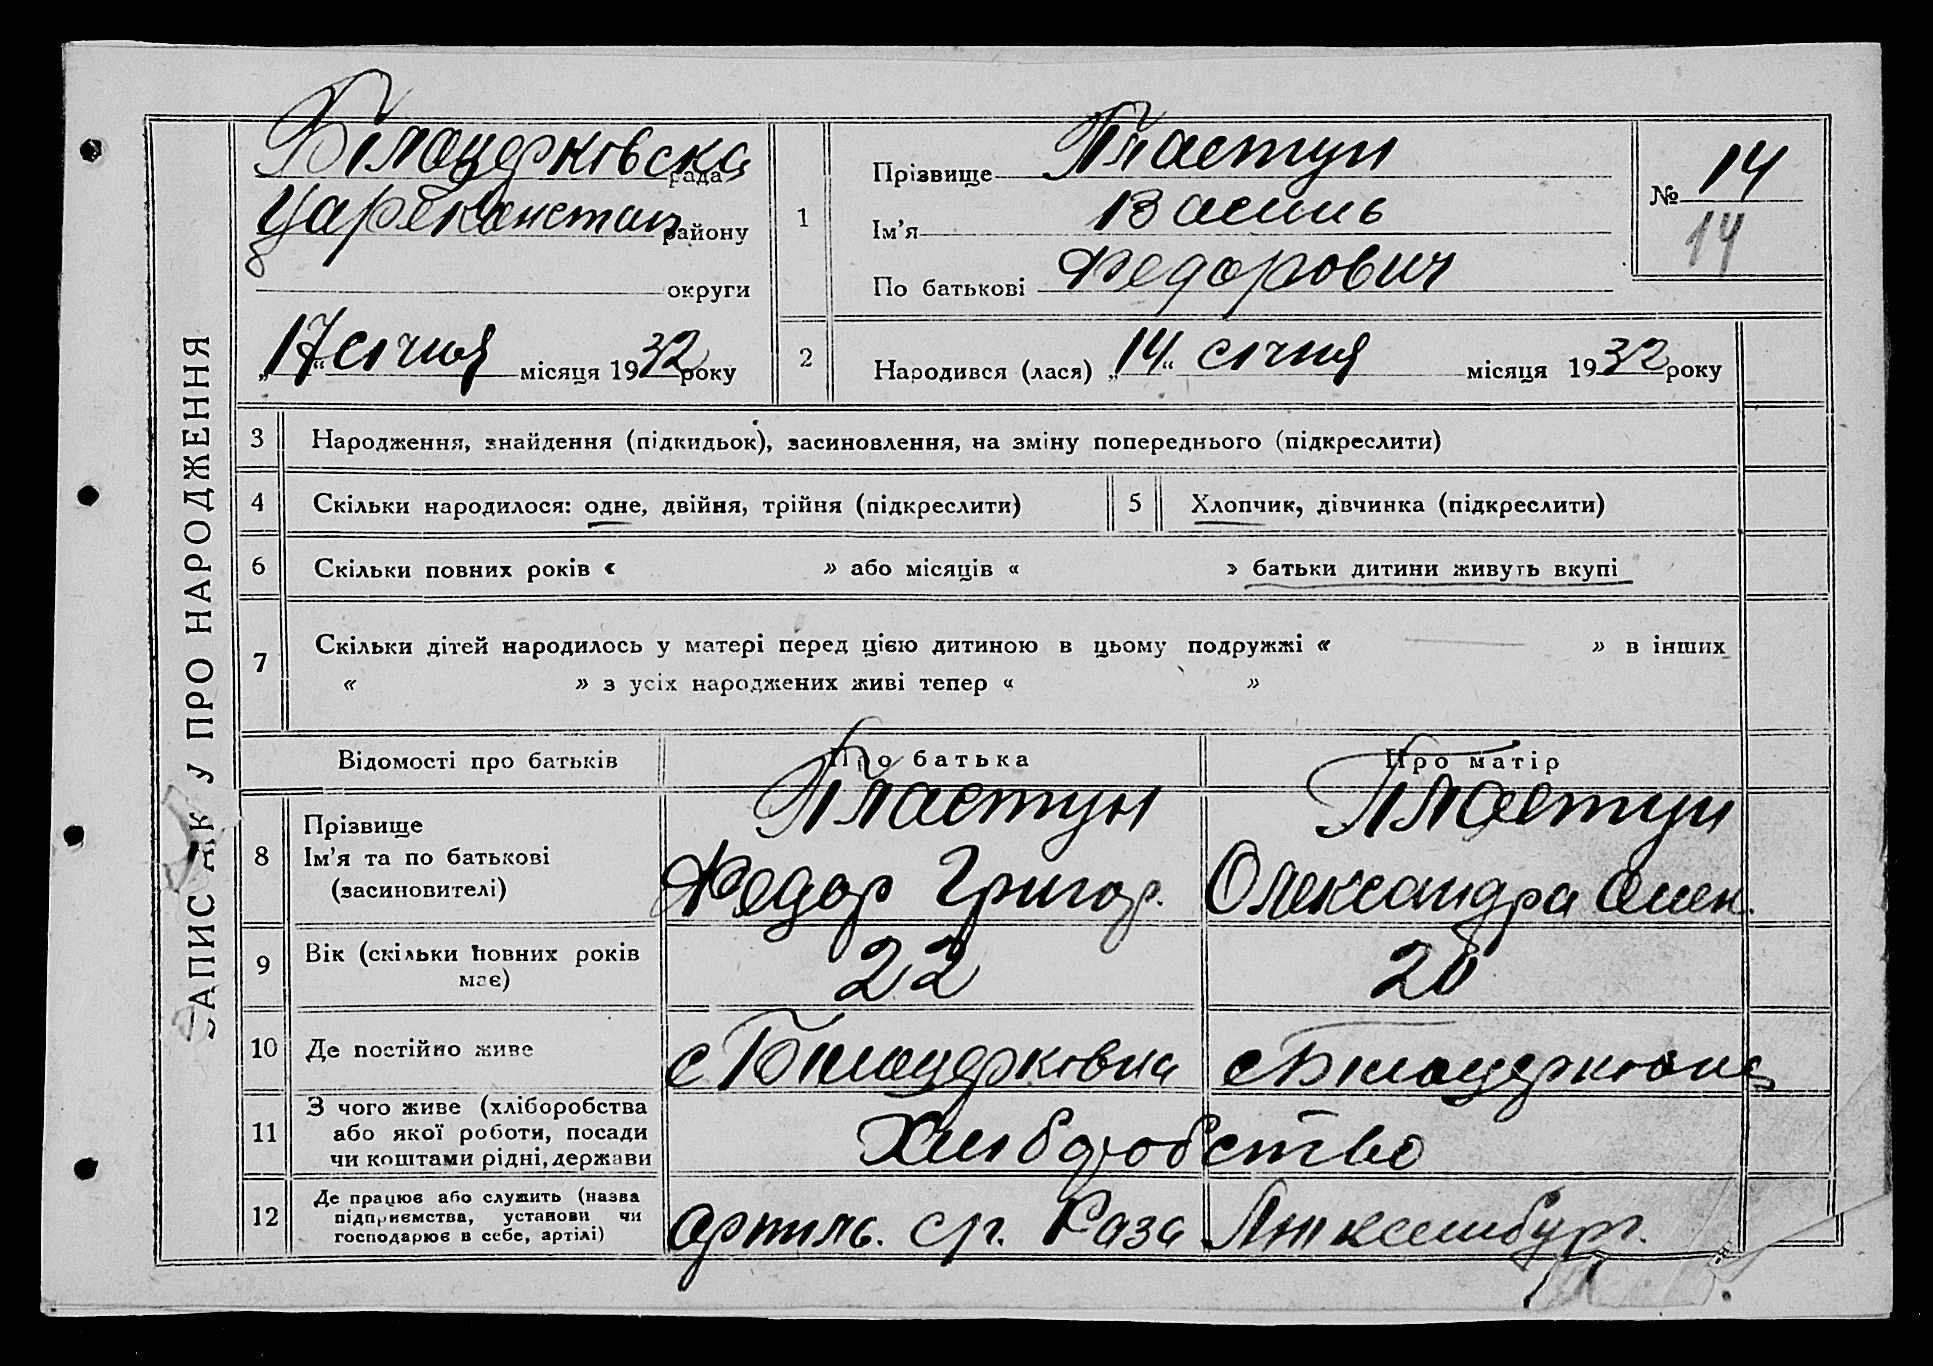 ЗАПИС АК У ПРО НАРОДЖЕННЯ
Білоцерковска рада
району
округи
„17“ січня місяця 1932 року
1
Прізвище Пластун
Ім'я Василь
По батькові Федорович
№ 14
14
2
Народився (лася) „14“ січня місяця 1932 року
3 Народження, знайдення (підкидьок), засиновлення, на зміну попереднього (підкреслити)
4 Скільки народилося: одне, двійня, трійня (підкреслити) 5 Хлопчик, дівчинка (підкреслити)
6 Скільки повних років « » або місяців « » батьки дитини живуть вкупі
7 Скільки дітей народилось у матері перед цією дитиною в цьому подружжі « — » в інших
« » з усіх народжених живі тепер « »
Відомості про батьків Про батька Про матір
8 Прізвище
Ім'я та по батькові
(засиновителі)
Пластун
Федор Григор.
Пластун
Олександра Олек.
9 Вік (скільки повних років
має)
22 20
10 Де постійно живе с Білоцерковка с Білоцерковка
11 З чого живе (хліборобства
або якої роботи, посади
чи коштами рідні, держави
Хліборобство
12 Де працює або служить (назва
підприємства, установи чи
господарює в себе, артілі)
Артиль. Роза Люксембург.